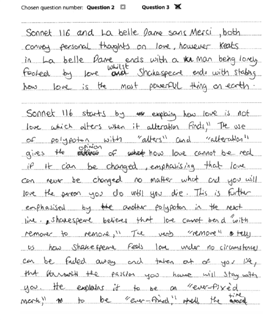 Chosen question number: Question 2 Question 3
Sonnet 116 and La belle Dame sans Merci, both
convey personal thoughts on love, however Keats
in La belle Dame ends with a man being lonely
fooled by love whilst Shakespeare ends with stating
how love is the most powerful thing on earth.
Sonnet 116 starts by explaing how love is not
love which alters when it alteration finds," The use
of polypoton with "alters" and "alteration"
gives the opinion of how love cannot be real
if it can be changed, emphasising that love
can never be changed no matter what and you will
love the person you do until you die. This is further
emphasised by the another polypoton in the next
line. Shakespeare believes that love cannot bend "with
remover to remove," The verb "remove" tells
us how Shakespeare feels love under no circumstances
can be faded away and taken out of you life,
that the passion you have will stay with
you. He explains it to be an "ever-fixed
mark," to be "ever-fixed", the time